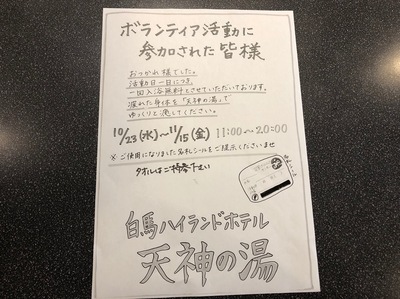 ボランティア活動に
参加された皆様
おつかれ様でした。
活動日一日につき、
一回入浴無料とさせていただいております。
疲れた身体を「天神の湯」で
ゆっくりと癒してください。
10/23(水)〜11/15(金) 11:00〜20:00
※ご使用になりました名札シールをご提示くださいませ
タオルはご持参下さい
白馬ハイランドホテル
天神の湯